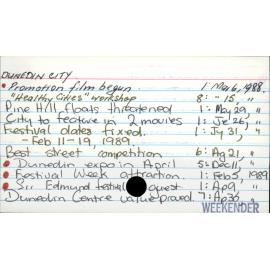 DUNEDIN CITY
• Promotion film begun. 1: Mar 6, 1988.
"Healthy Cities" workshop 8: " 15, "
Pine Hill floats threatened 1: May 29, "
City to feature in 2 movies 1: Je 26, "
Festival dates fixed. 1: Jy 31, "
- Feb 11-19, 1989.
Best street competition 6: Ag 21, "
• Dunedin expo in April 5: Dec 11, "
• Festival Week attraction. 1: Feb 5, 1989
• Sir Edmund festival guest 1: Ap 9, "
Dunedin Centre value proved. 7: Ap 30, "
WEEKENDER